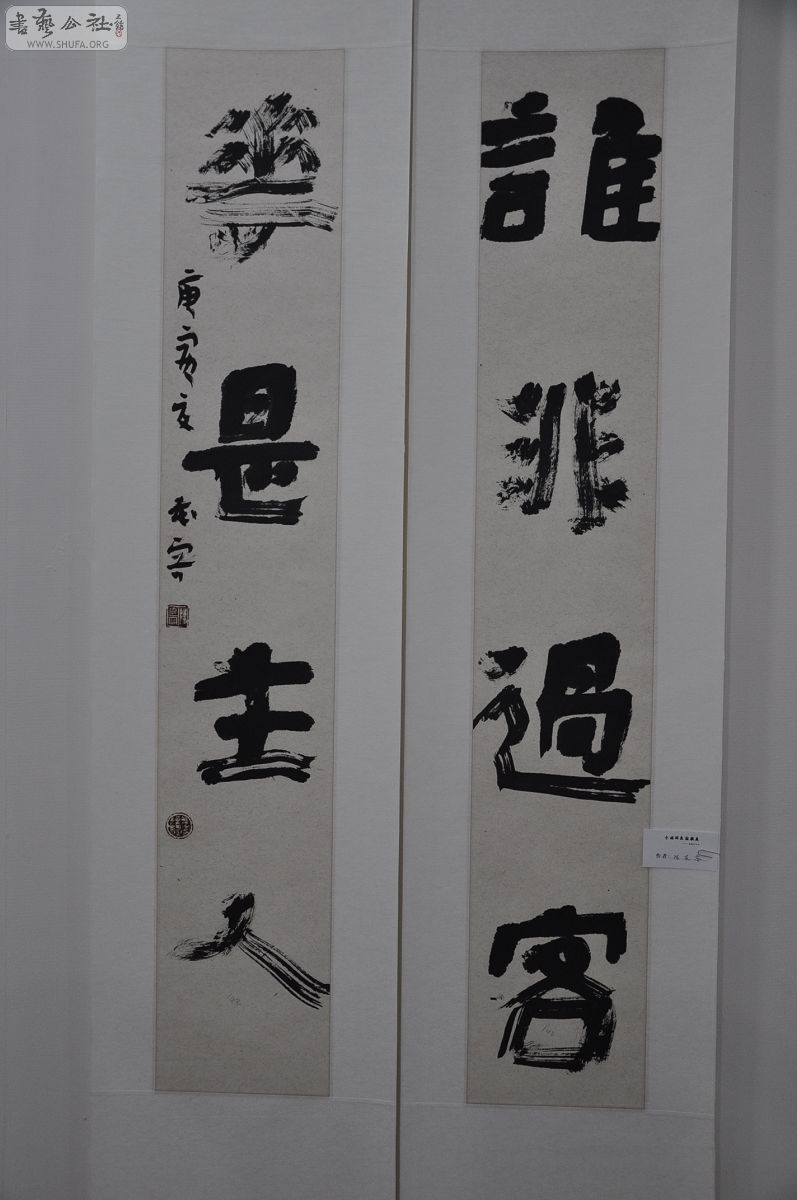 書藝公社
WWW.SHUFA.ORG
誰非過客
華是主人
庚寅夏
作者: